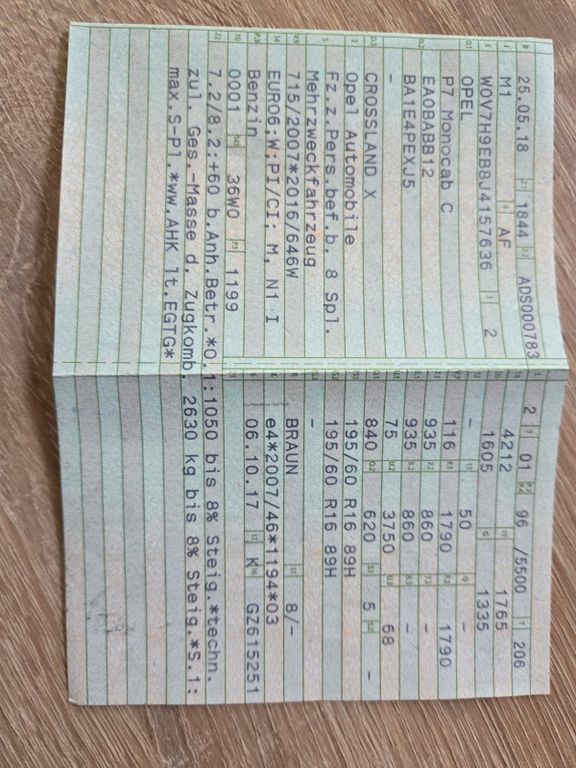 B 25.05.18 2.1 1844 2.2 ADS000783
J M1 4 AF
E W0V7H9EB8J4157636 3 2
D.1 OPEL
P7 Monocab C
D.2 EA0BABB12
BA1E4PEXJ5
-
D.3 CROSSLAND X
2 Opel Automobile
5 Fz.z.Pers.bef.b. 8 Spl.
Mehrzweckfahrzeug
V.9 715/2007*2016/646W
14 EURO6;W;PI/CI; M, N1 I
P.3 Benzin
10 0001 14.1 36W0 P.1 1199
L 2 9 01 P.2 P.4 96 /5500 T 206
18 4212 19 1765
20 1605 G 1335
12 - 13 50 Q -
V.7 116 F.1 1790 F.2 1790
7.1 935 7.2 860 7.3 -
8.1 935 8.2 860 8.3 -
U.1 75 U.2 3750 U.3 68
O.1 840 O.2 620 S.1 5 S.2 -
15.1 195/60 R16 89H
15.2 195/60 R16 89H
15.3 -
R BRAUN 11 8/-
K e4*2007/46*1194*03
6 06.10.17 17 K 16 GZ615251
21
22 7.2/8.2:+60 b.Anh.Betr.*O.1:1050 bis 8% Steig.*techn.
zul. Ges.-Masse d. Zugkomb. 2630 kg bis 8% Steig.*S.1:
max.S-Pl.*ww.AHK lt.EGTG*